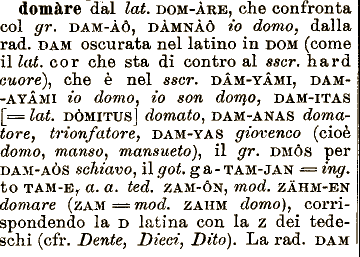 domàre dal lat. DOM-ÀRE, che confronta
col gr. DAM-ÀÔ, DÀMNÀÔ io domo, dalla
rad. DAM oscurata nel latino in DOM (come
il lat. cor che sta di contro al sscr. hard
cuore), che è nel sscr. DÂM-YÂMI, DAM-
-AYÂMI io domo, io son domo, DAM-ITAS
[= lat. DÒMITUS] domato, DAM-ANAS doma-
tore, trionfatore, DAM-YAS giovenco (cioè
domo, manso, mansueto), il gr. DMÔS per
DAM-AÒS schiavo, il got. ga-TAM-JAN = ing.
to TAM-E, a. a. ted. ZAM-ÔN, mod. ZÄHM-EN
domare (ZAM = mod. ZAHM domo), corri-
spondendo la D latina con la Z dei tede-
schi (cfr. Dente, Dieci, Dito). La rad. DAM